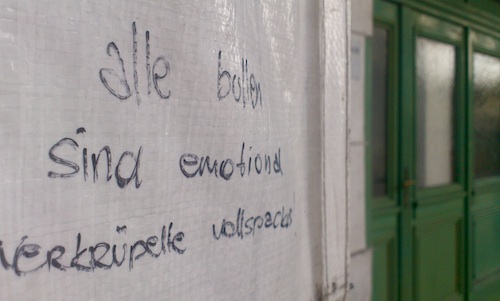 alle bullen
sind emotional
verkrüpelte vollspacks